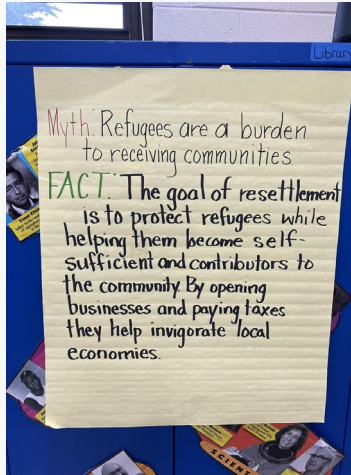 Library
Myth: Refugees are a burden
to receiving communities
FACT: The goal of resettlement
is to protect refugees while
helping them become self-
sufficient and contributors to
the community. By opening
businesses and paying taxes
they help invigorate local
economies.
SCIENT